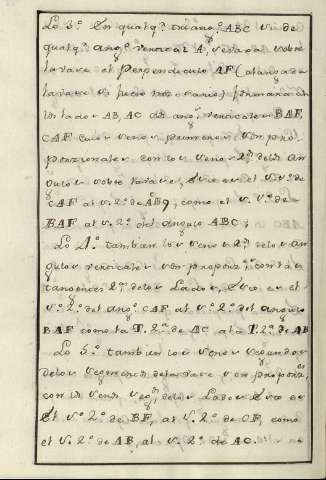 Lo 3.º En qualq.ª triang.º ABC si de
qualq.ª ang.º vertical A, se baxa sobre
la vase el Perpendiculo AF (alargada
la vase si fuere necesario) formara con
los lados AB, AC dos ang.s verticales BAF,
CAF cuios senos primeros son pro-
porzionales con los senos 2.os delos an-
gulos sobre la vase, esto es el s.º 1.º de
CAF al s.º 2.º de ACB; como el s.º 1.º de
BAF al s.º 2.º del angulo ABC;
Lo 4.º tambien los senos 2.os delos an-
gulos verticales son proporz.s con las
tangentes 2.as delos Lados, esto es el
s.º 2.º del ang.º CAF al s.º 2.º del angulo
BAF como la T. 2.ª de AC a la T. 2.ª de AB
Lo 5.º tambien los senos segundos
delos segmentos de la vase son proporz.s
con los senos seg.s delos Lados esto es
El s.º 2.º de BF, al s. 2.º de CF, como
el s. 2.º de AB, al s. 2.º de AC.